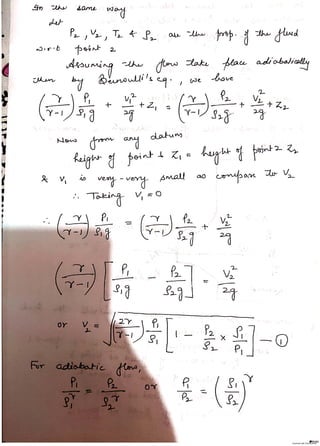 In the same way
Let
P₂, V₂, T₂ & ρ₂ are the prop. of the fluid
w.r.t point 2
Assuming the flow take place adiabatically
then by Bernoulli's eq., we have
(γ/(γ-1)) P₁/(ρ₁g) + V₁²/2g + Z₁ = (γ/(γ-1)) P₂/(ρ₂g) + V₂²/2g + Z₂
Now from any datum
height of point 1 Z₁ = height of point 2 Z₂
& V₁ is very-very small as compare to V₂
∴ Taking V₁ = 0
∴ (γ/(γ-1)) P₁/(ρ₁g) = (γ/(γ-1)) P₂/(ρ₂g) + V₂²/2g
(γ/(γ-1)) [P₁/(ρ₁g) - P₂/(ρ₂g)] = V₂²/2g
or V₂ = √((2γ/(γ-1)) P₁/ρ₁ [1 - P₂/ρ₂ × ρ₁/P₁]) — ①
For adiabatic flow,
P₁/ρ₁^γ = P₂/ρ₂^γ or P₁/P₂ = (ρ₁/ρ₂)^γ